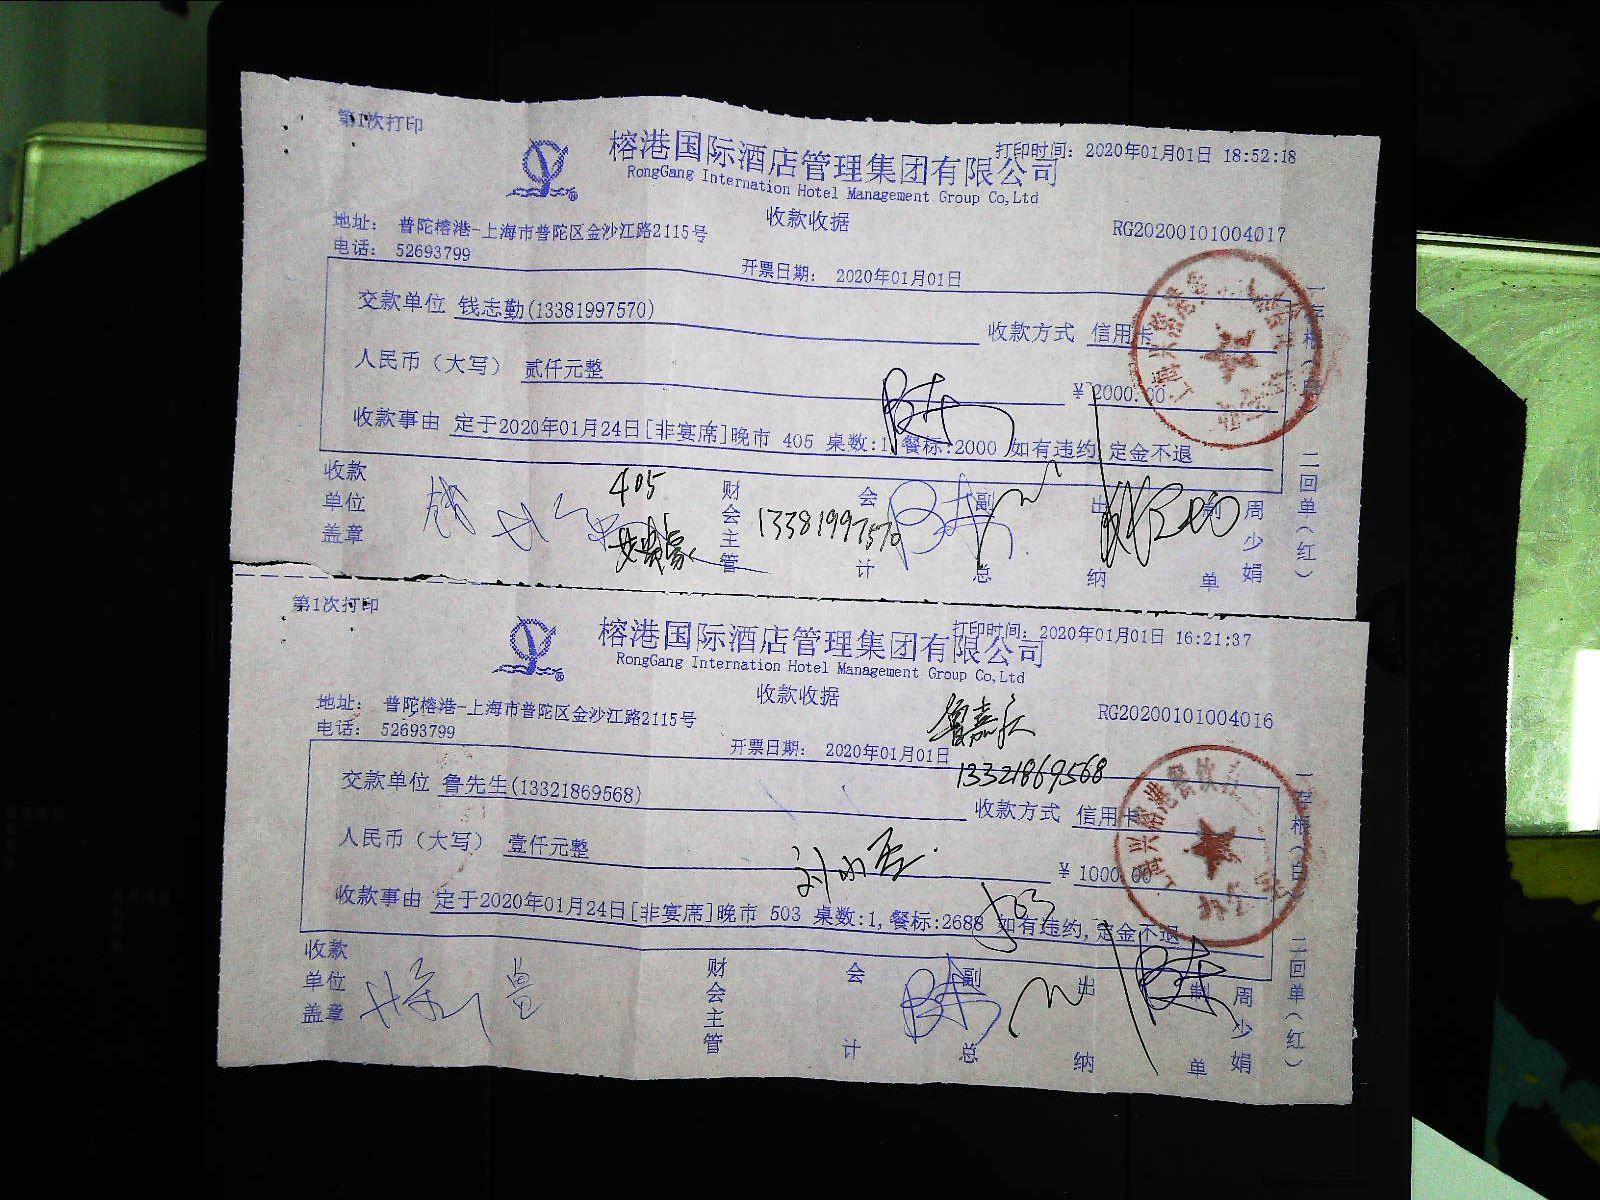 第1次打印
打印时间：2020年01月01日 18:52:18
榕港国际酒店管理集团有限公司
RongGang Internation Hotel Management Group Co,Ltd
收款收据
RG20200101004017
地址： 普陀榕港-上海市普陀区金沙江路2115号
电话： 52693799
开票日期： 2020年01月01日
交款单位 钱志勤(13381997570)
收款方式 信用卡
人民币（大写） 贰仟元整
¥ 2000.00
收款事由 定于2020年01月24日[非宴席]晚市 405 桌数:1,餐标:2000 如有违约,定金不退
一存根（白）
二回单（红）
收款单位盖章
405
财会主管
13381997570
会计
副总
出纳
制单
周少娟
第1次打印
打印时间：2020年01月01日 16:21:37
榕港国际酒店管理集团有限公司
RongGang Internation Hotel Management Group Co,Ltd
收款收据
RG20200101004016
地址： 普陀榕港-上海市普陀区金沙江路2115号
电话： 52693799
开票日期： 2020年01月01日
13321869568
交款单位 鲁先生(13321869568)
收款方式 信用卡
人民币（大写） 壹仟元整
¥ 1000.00
收款事由 定于2020年01月24日[非宴席]晚市 503 桌数:1,餐标:2688 如有违约,定金不退
503
一存根（白）
二回单（红）
收款单位盖章
财会主管
会计
副总
出纳
制单
周少娟